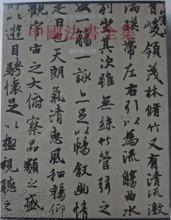 中國法書全集
有峻領茂林脩竹又有清流激
湍暎帶左右引以為流觴曲水
列坐其次雖無絲竹管弦之
盛一觴一詠亦足以暢敘幽情
是日也天朗氣清惠風和暢仰
觀宇宙之大俯察品類之盛
所以遊目騁懷足以極視聽之